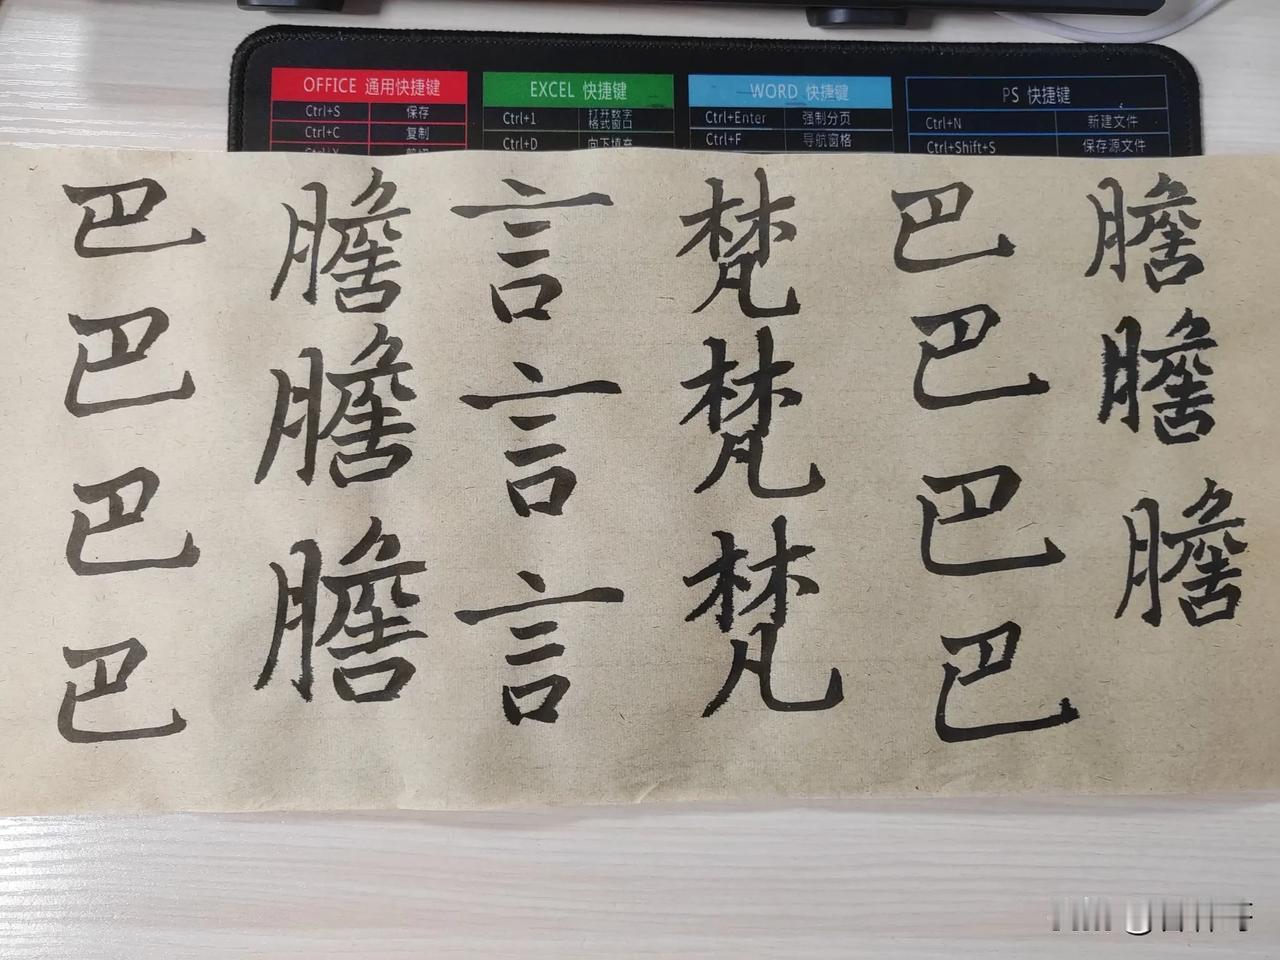 OFFICE 通用快捷键
Ctrl+S 保存
Ctrl+C 复制
EXCEL 快捷键
Ctrl+1 打开数字格式窗口
Ctrl+D 向下填充
WORD 快捷键
Ctrl+Enter 强制分页
Ctrl+F 导航窗格
PS 快捷键
Ctrl+N 新建文件
Ctrl+Shift+S 保存源文件
膽膽膽
巴巴巴巴
梵梵梵
言言言
膽膽膽
巴巴巴巴